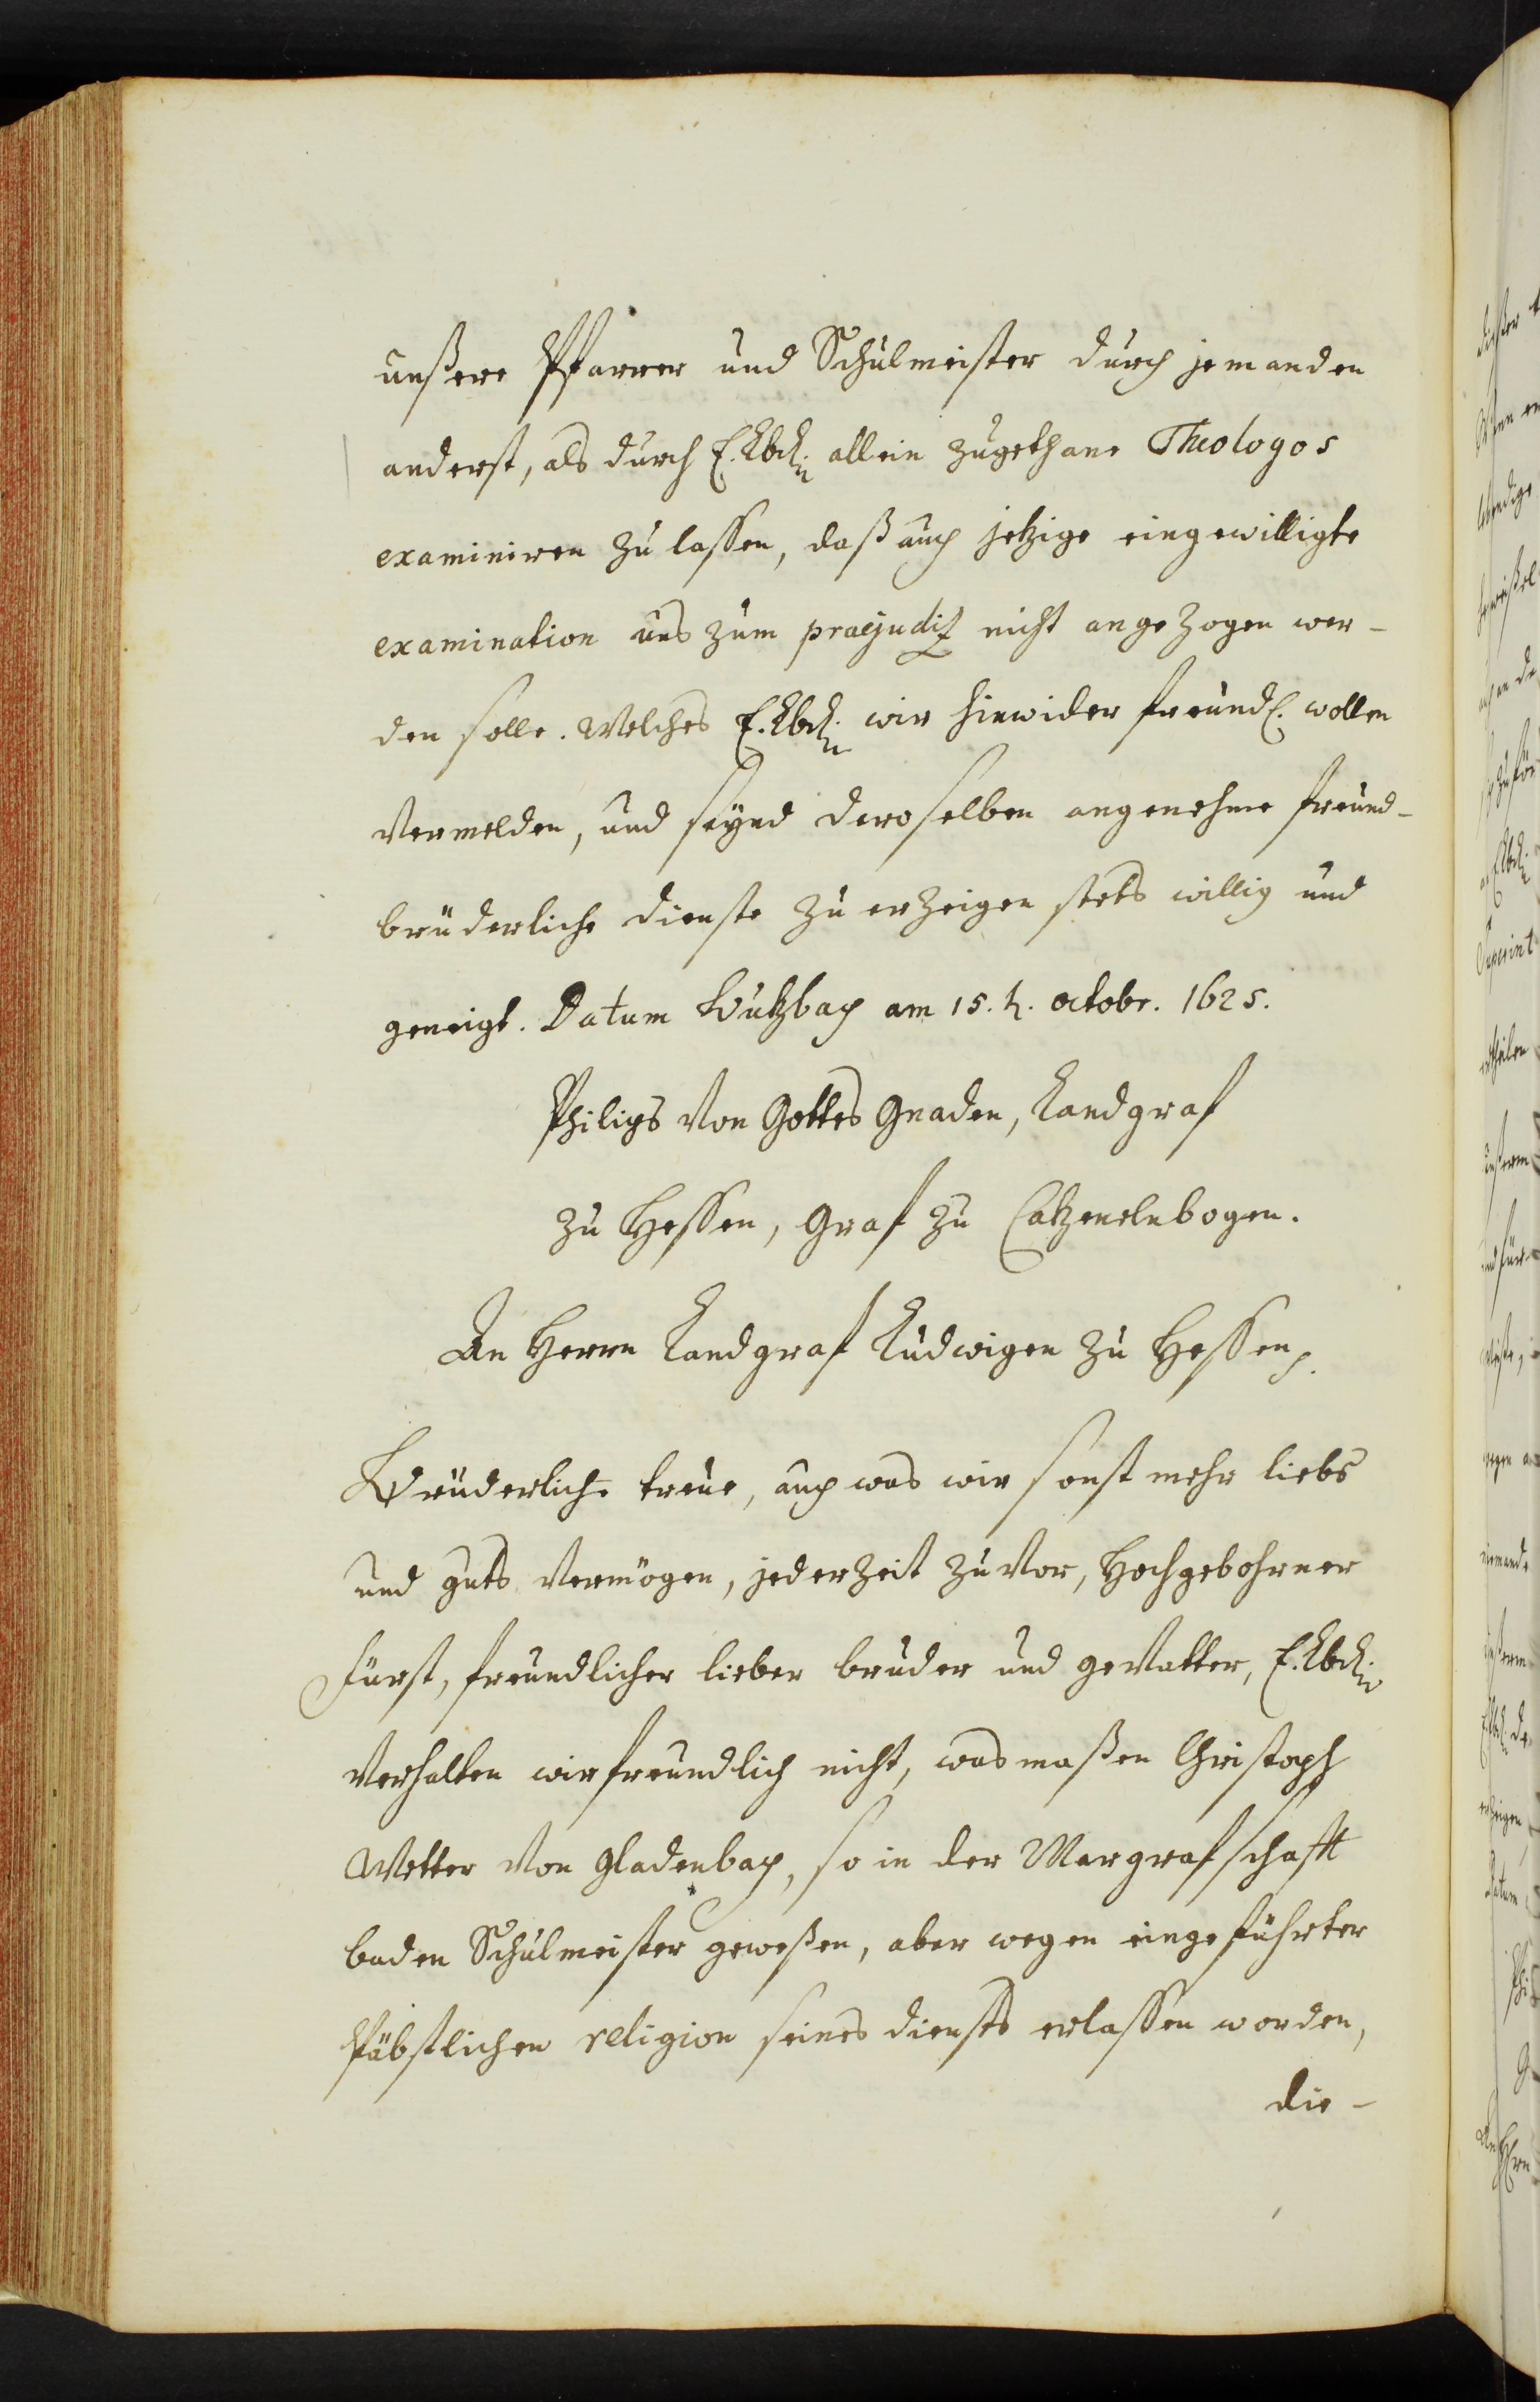 unßere Pfarrer und Schulmeister durch jemanden
anderst, als durch E. Lbd. allein zugethane Theologos
examiniren zu lassen, daß auch jetzige eingewilligte
examination uns zum praejudiz nicht angezogen wer-
den solle. Welches E. Lbd. wir hinwider freundl. wollen
vermelden, und seynd deroselben angenehme freund-
brüderliche dienste zu erzeigen stets willig und
geneigt. Datum Butzbach am 15. t. octobr. 1625.
Philips von Gottes Gnaden, Landgraf
zu Hessen, Graf zu Catzenelnbogen.
An Herrn Landgraf Ludwigen zu Hessen p.
Brüderliche treue, auch was wir sonst mehr liebs
und guts vermögen, jederzeit zuvor, Hochgebohrner
Fürst, freundlicher lieber bruder und gevatter, E. Lbd.
verhalten wir freundlich nicht, was maßen Christoph
Vetter von Gladenbach, so in der Margrafschafft
baden Schulmeister geweßen, aber wegen eingeführter
Päbstlichen religion seines diensts erlassen worden,
die-